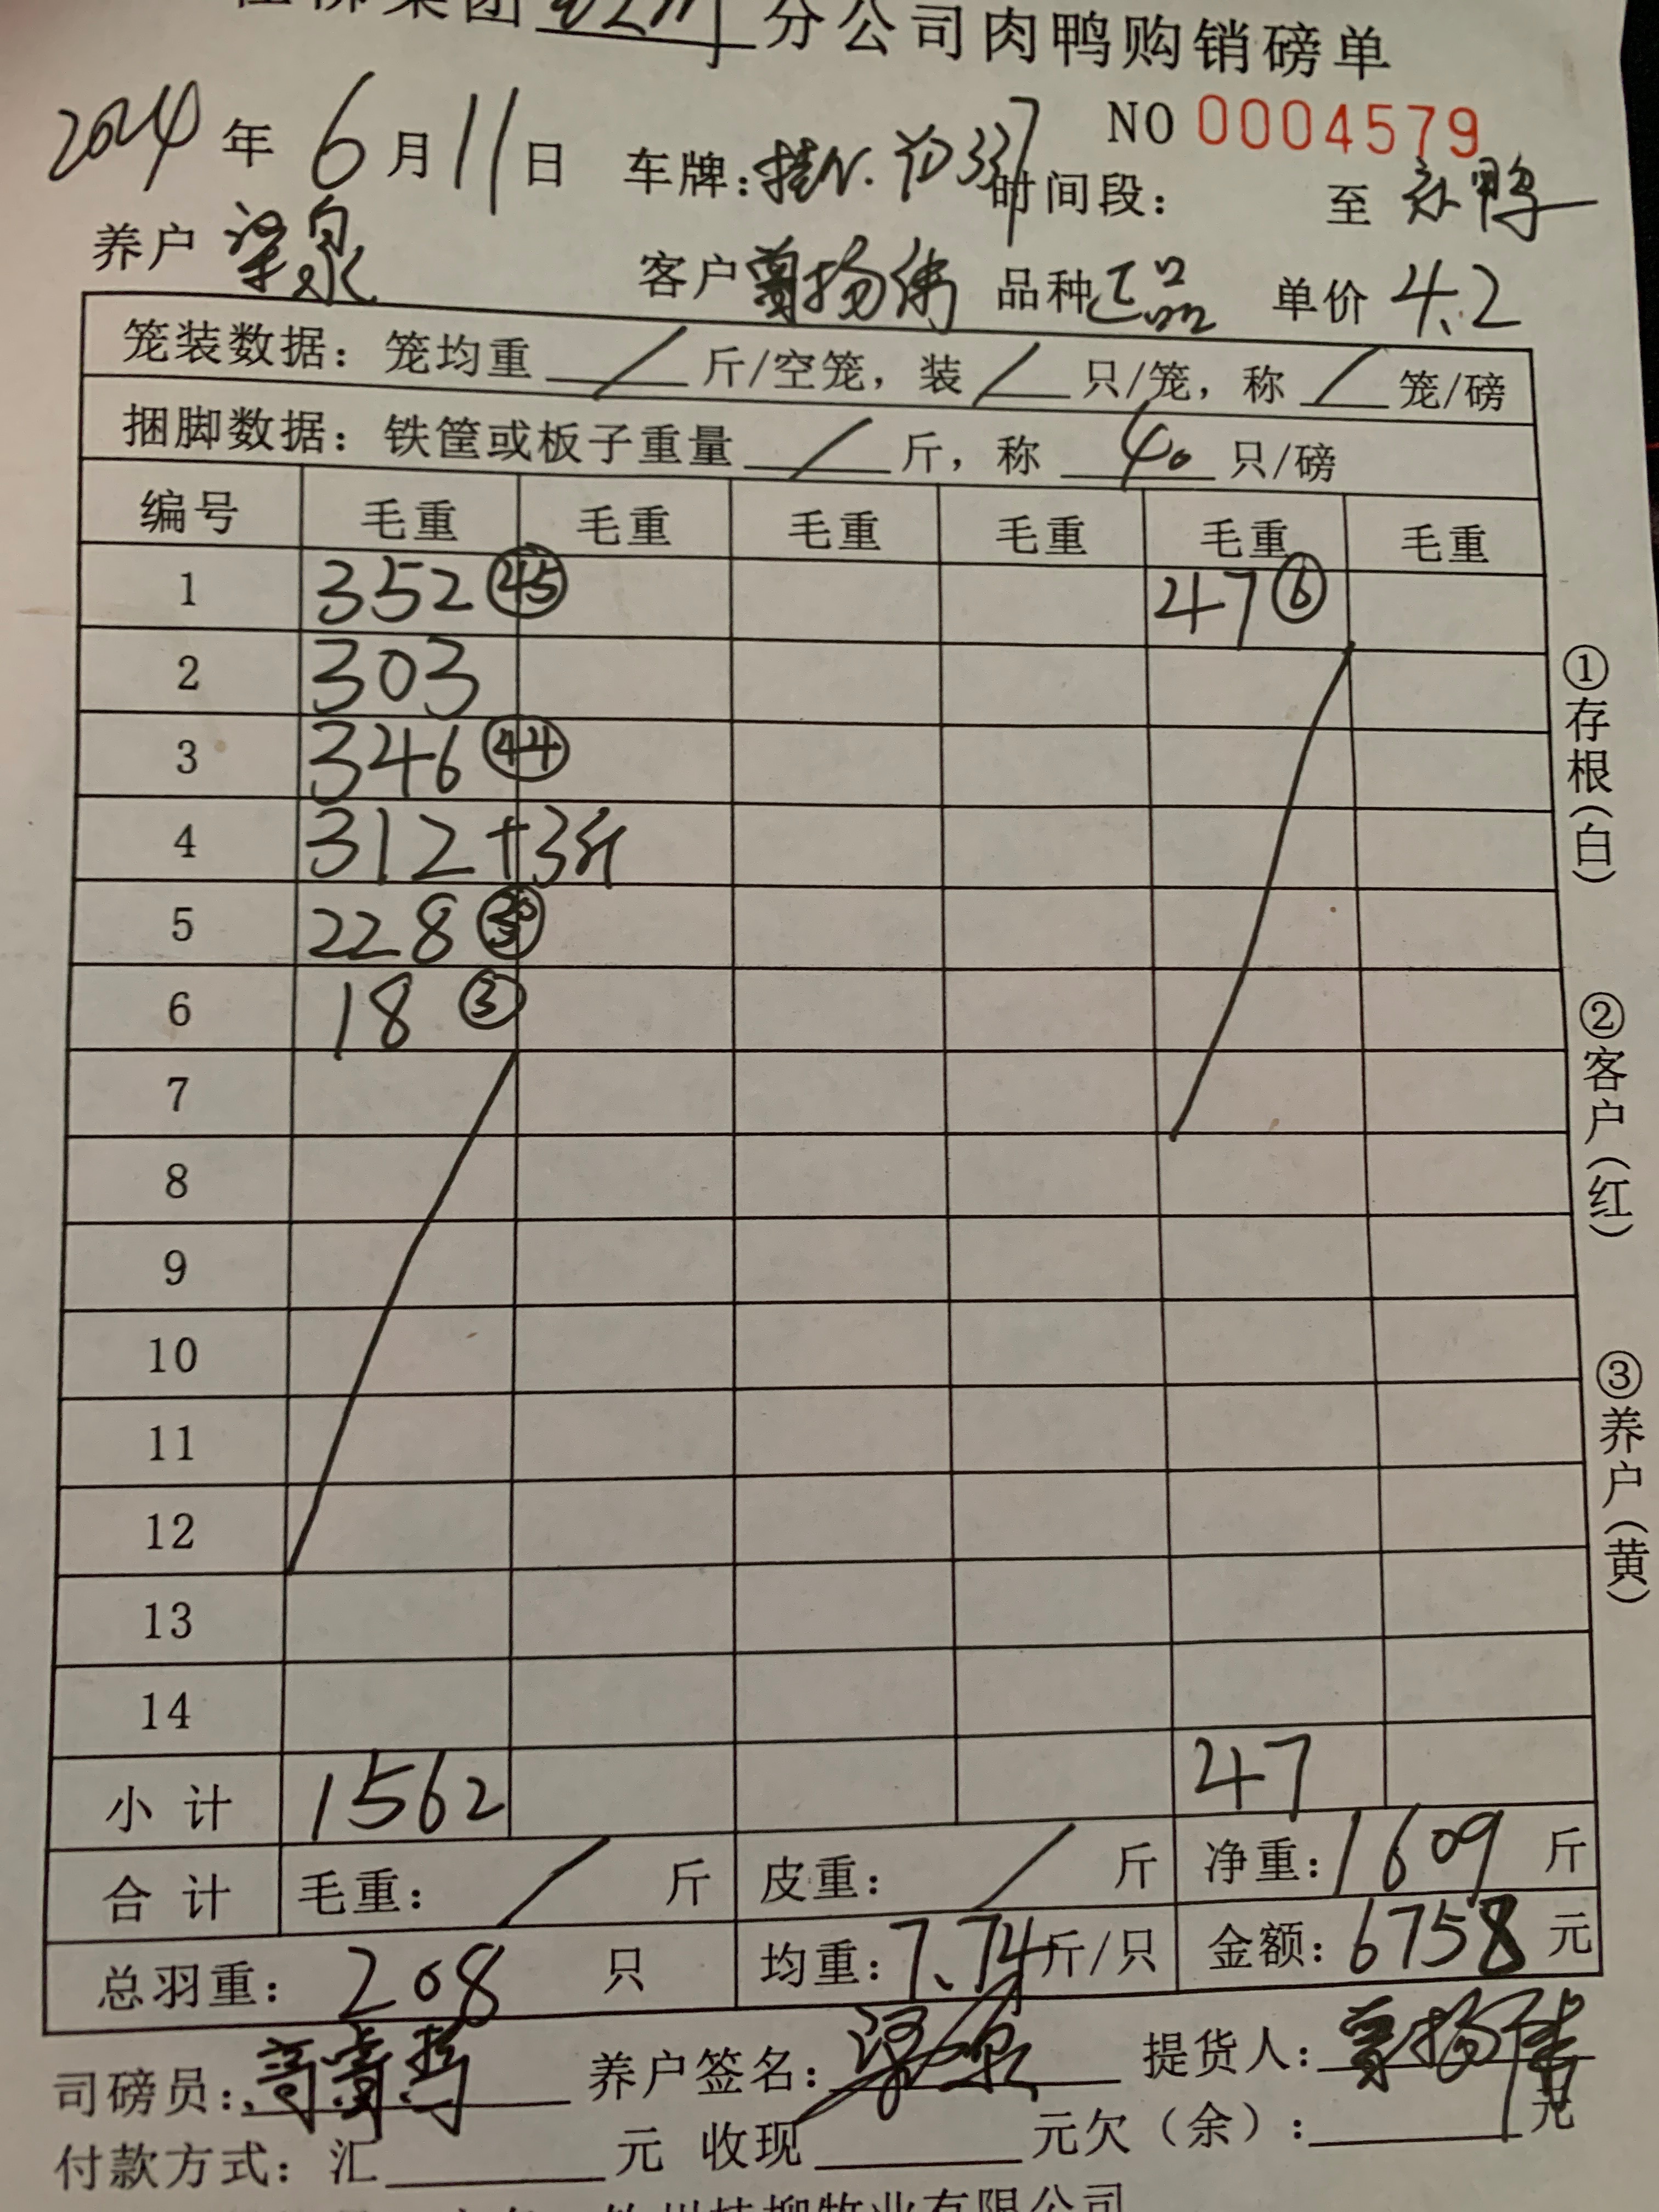 集团 分公司肉鸭购销磅单
NO 0004579
2024年6月11日 车牌: 337 时间段: 至
养户 梁泉 客户 曾扬伟 品种 正品 单价 4.2
笼装数据: 笼均重 / 斤/空笼, 装 / 只/笼, 称 / 笼/磅
捆脚数据: 铁筐或板子重量 / 斤, 称 40 只/磅
编号 毛重 毛重 毛重 毛重 毛重 毛重
1 352 ㊺ 47 ⑥
2 303
3 346 ㊹
4 312 +3斤
5 228 ㉚
6 18 ③
7
8
9
10
11
12
13
14
小计 1562 47
合计 毛重: / 斤 皮重: / 斤 净重: 1609 斤
总羽重: 208 只 均重: 7.74 斤/只 金额: 6758 元
司磅员: 养户签名: 梁泉 提货人: 曾扬伟
付款方式: 汇 元 收现 元欠(余): 元
桂柳牧业有限公司
①存根(白)
②客户(红)
③养户(黄)